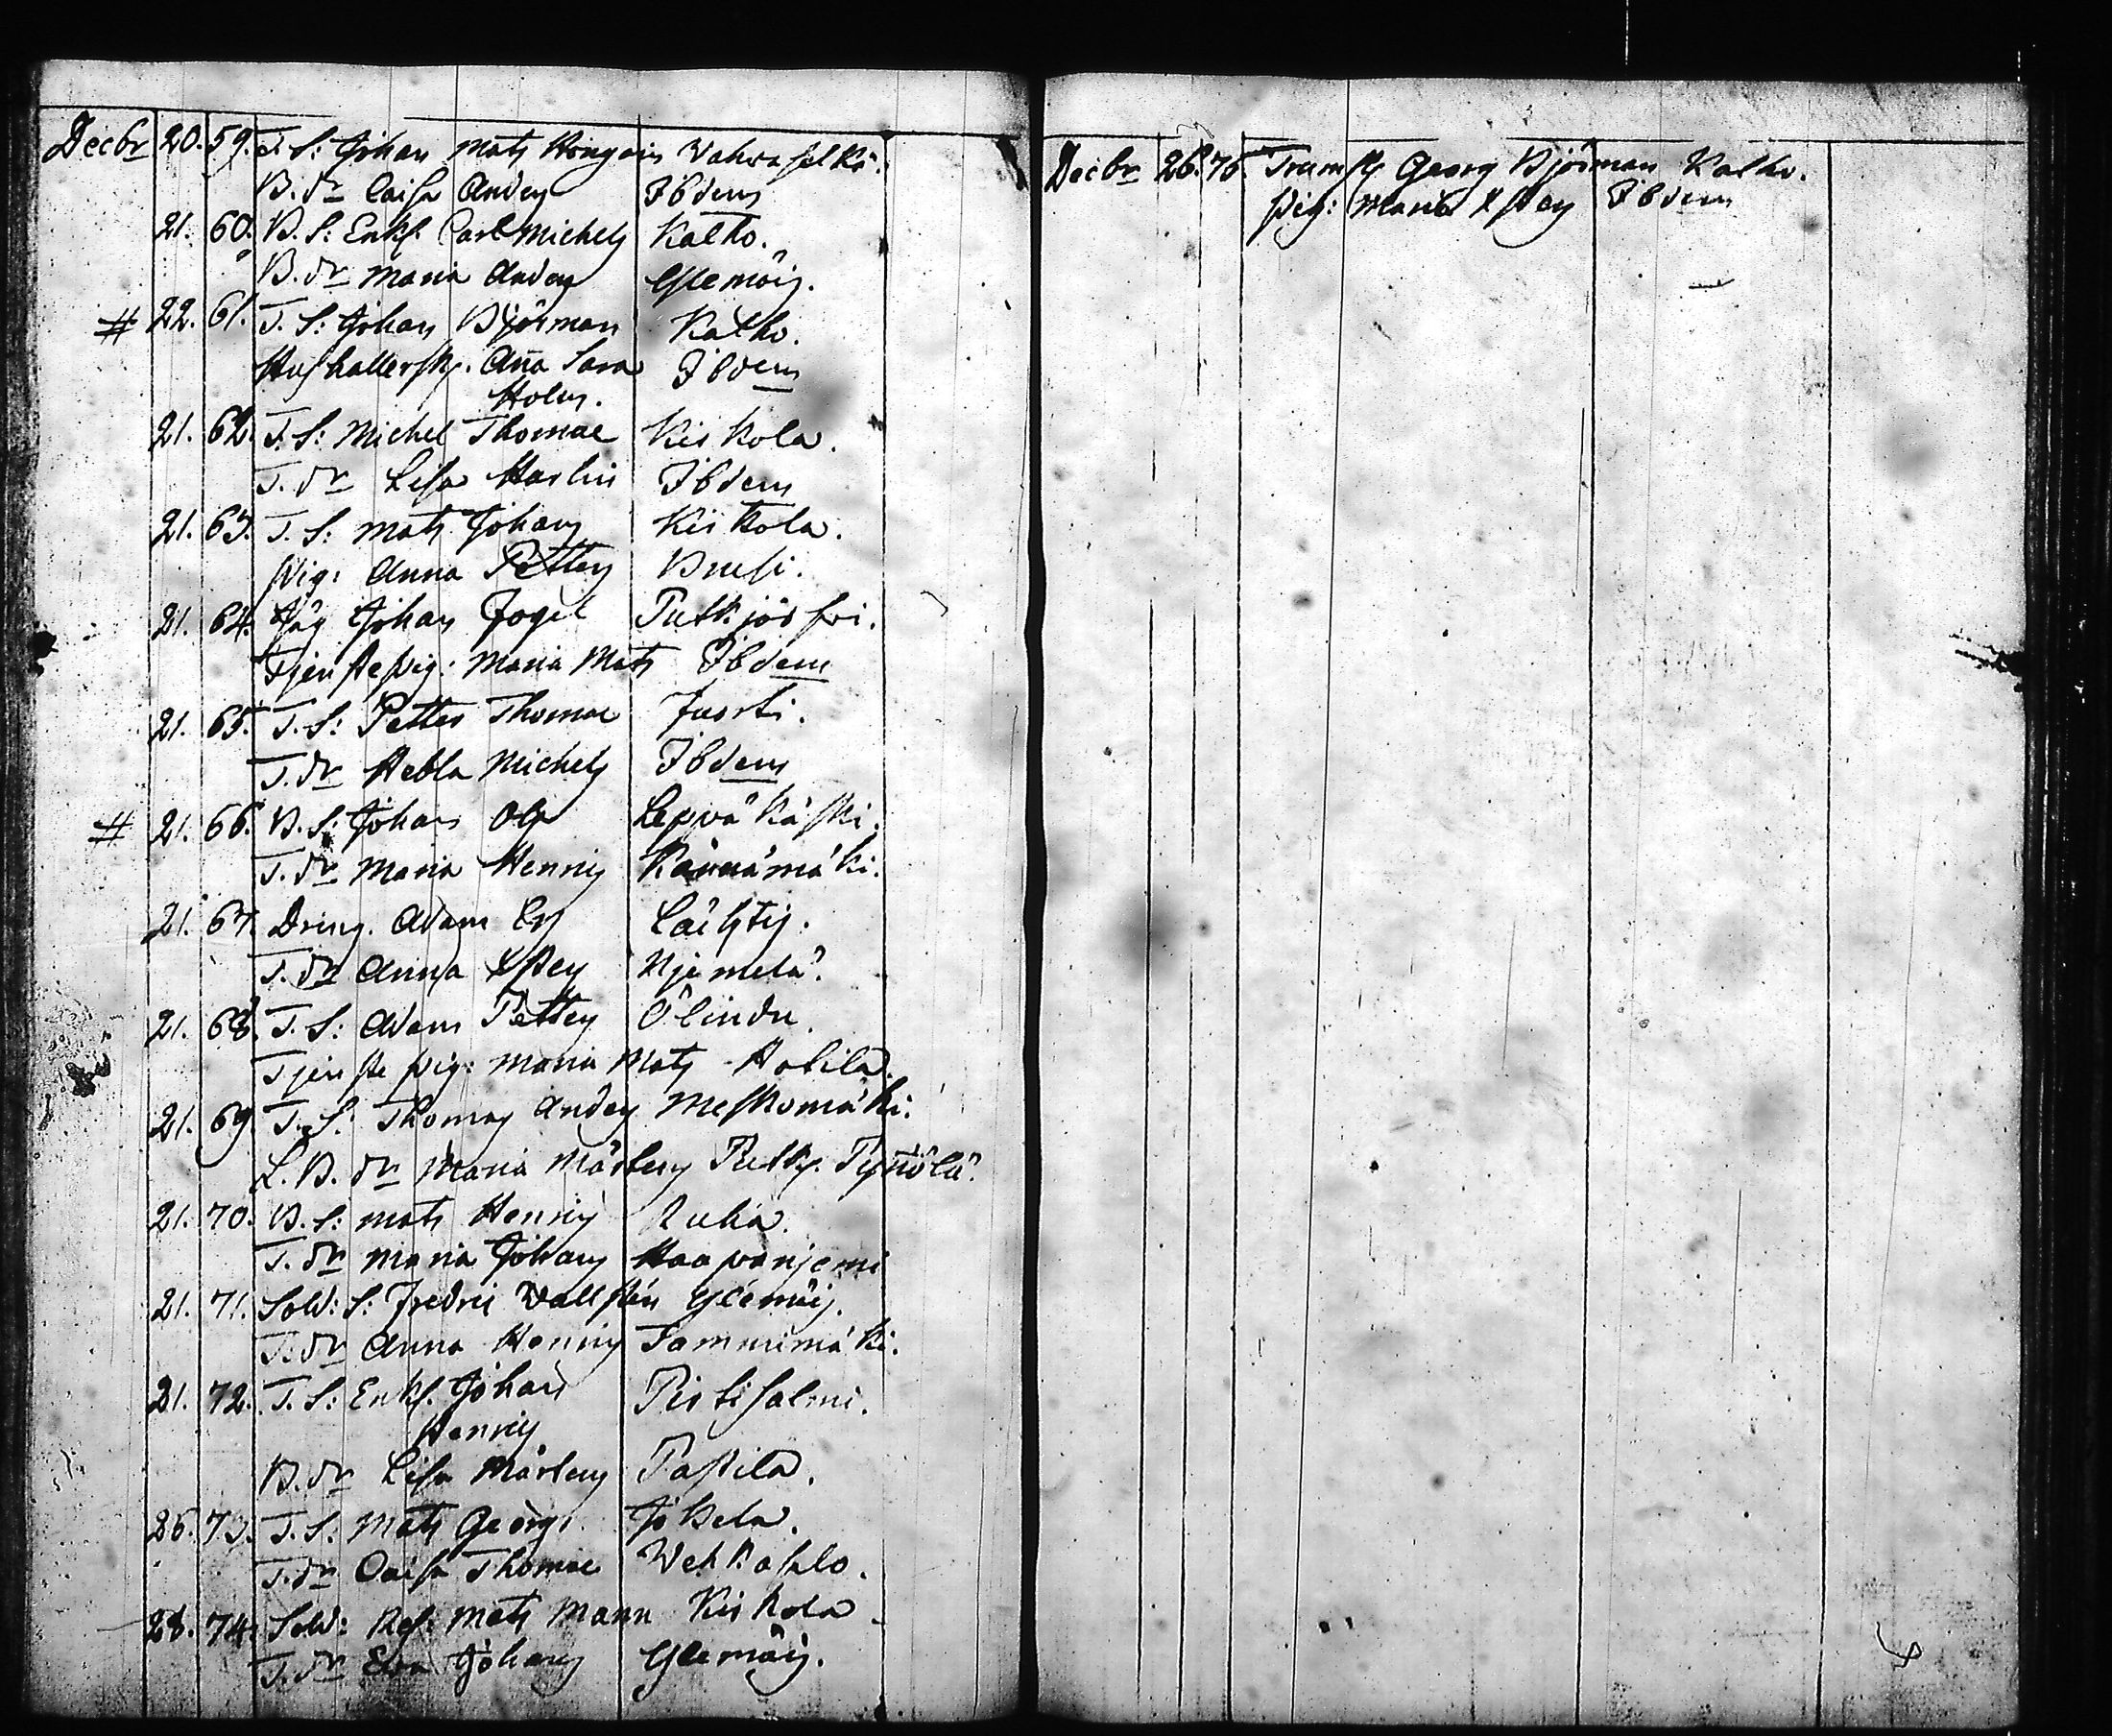 Decbr 20. 59. T. S: Johan Mats Hongain Wahwaselkä.
B. dr Caisa Anders Ibdem
21. 60. B. S: Enkl. Carl Michels Kalho.
B. dr Maria Anders Ylemäis.
# 22. 61. T. S: Johan Björman Kalho.
Hushallersk. Anna Sara Ibdem
Holm.
21. 62. T. S: Michel Thomae Kiskola.
T. dr Lisa Harlin Ibdem
21. 63. T. S: Mats Johans Kiskola.
Pig: Anna Petters Brusi.
21. 64. Johan Fogel
Tjenstepig: Maria Mats Ibdem
21. 65. T. S: Petter Thomae Juorti.
T. dr Hebla Michels Ibdem
# 21. 66. B. S: Johan Ols Leppäkäski.
T. dr Maria Henrics
21. 67. Dreng. Adam Ers
T. dr Anna Njemelä.
21. 68. T. S: Adam Petters
Tjenste pig: Maria Mats Hotila.
21. 69. T. S: Thomas Anders Meskomäki.
L. B. dr Maria Mårtens Putk. Tynölä.
21. 70. B. S: Mats Henrics Ruha.
T. dr Maria Johans Haapanjemi
21. 71. Sold: S: Fredric Wallstén Ylemäis.
T. dr Anna Henrics Tammimäki.
21. 72. T. S: Enkl. Johan Pirtisalmi.
Henrics
B. dr Lisa Mårtens Papila.
26. 73. T. S: Mats Georgi Jokela.
T. dr Caisa Thomae
28. 74. Sold: Ref: Mats Mann Kiskola
T. dr Eva Johans Ylemäis.
Decbr 26. 75. Georg Björman Kalho.
Pig: Maria Ibdem